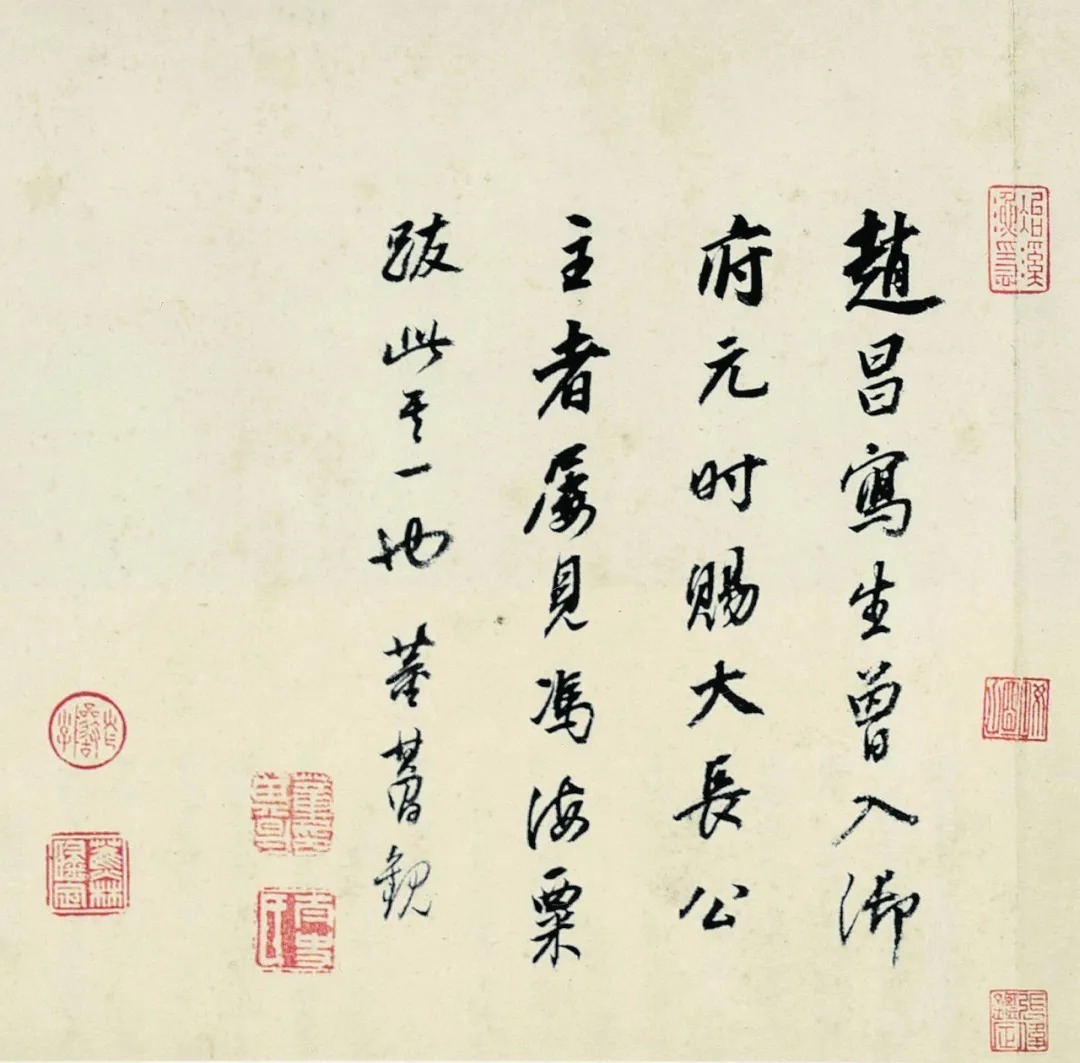 趙昌寫生曾入御
府元时賜大長公
主者屡見馮海粟
跋此其一也 董其昌觀
冶溪漁隱